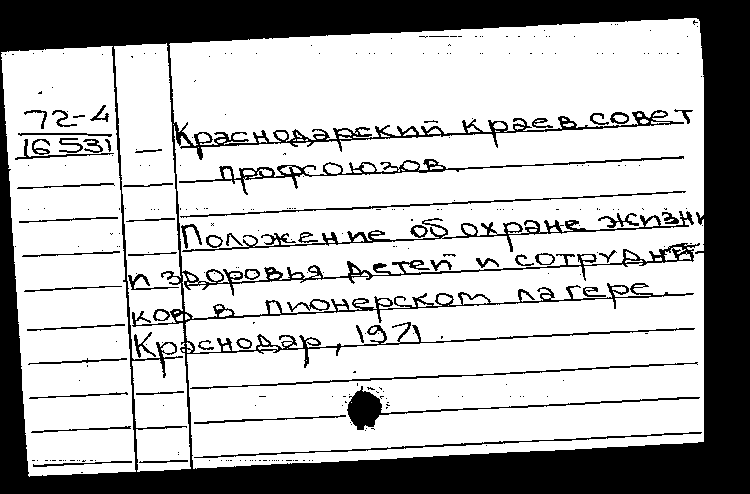 72-4
16531
Краснодарский краев. совет
профсоюзов.
Положение об охране жизни
и здоровья детей и сотрудни-
ков в пионерском лагере.
Краснодар, 1971.